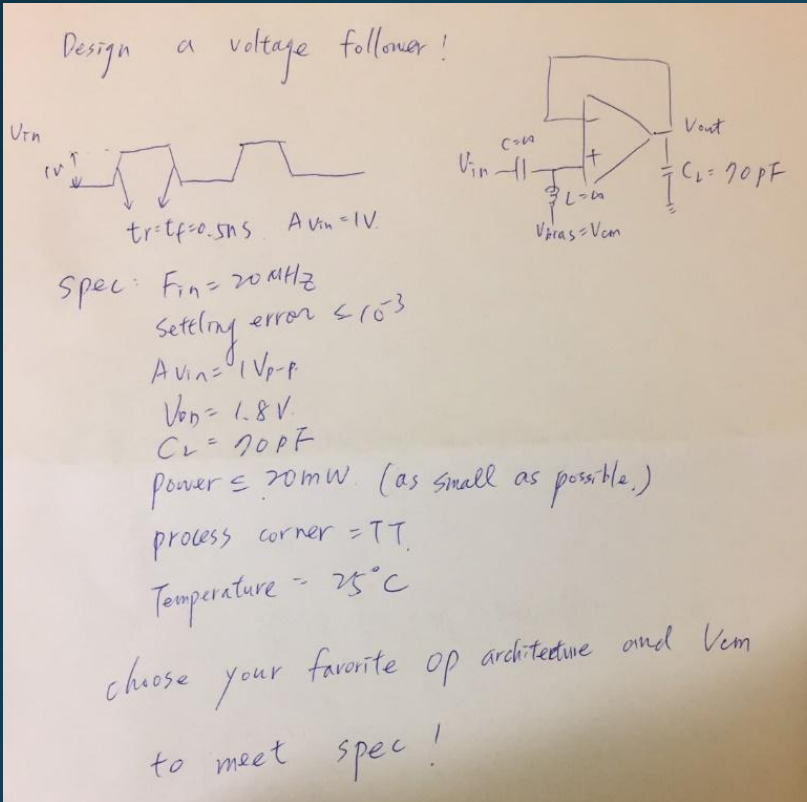 Design a voltage follower!
Vin
1V
tr=tf=0.5ns AVin=1V.
C=∞
Vin
-
+
Vout
L=∞
CL=70pF
Vbias=Vcm
Spec: Fin=20MHz
Settling error ≤ 10^-3
AVin=1Vp-p.
VDD=1.8V.
CL=70pF
Power ≤ 20mW. (as small as possible.)
process corner = TT.
Temperature = 25°C
choose your favorite op architecture and Vcm
to meet spec!